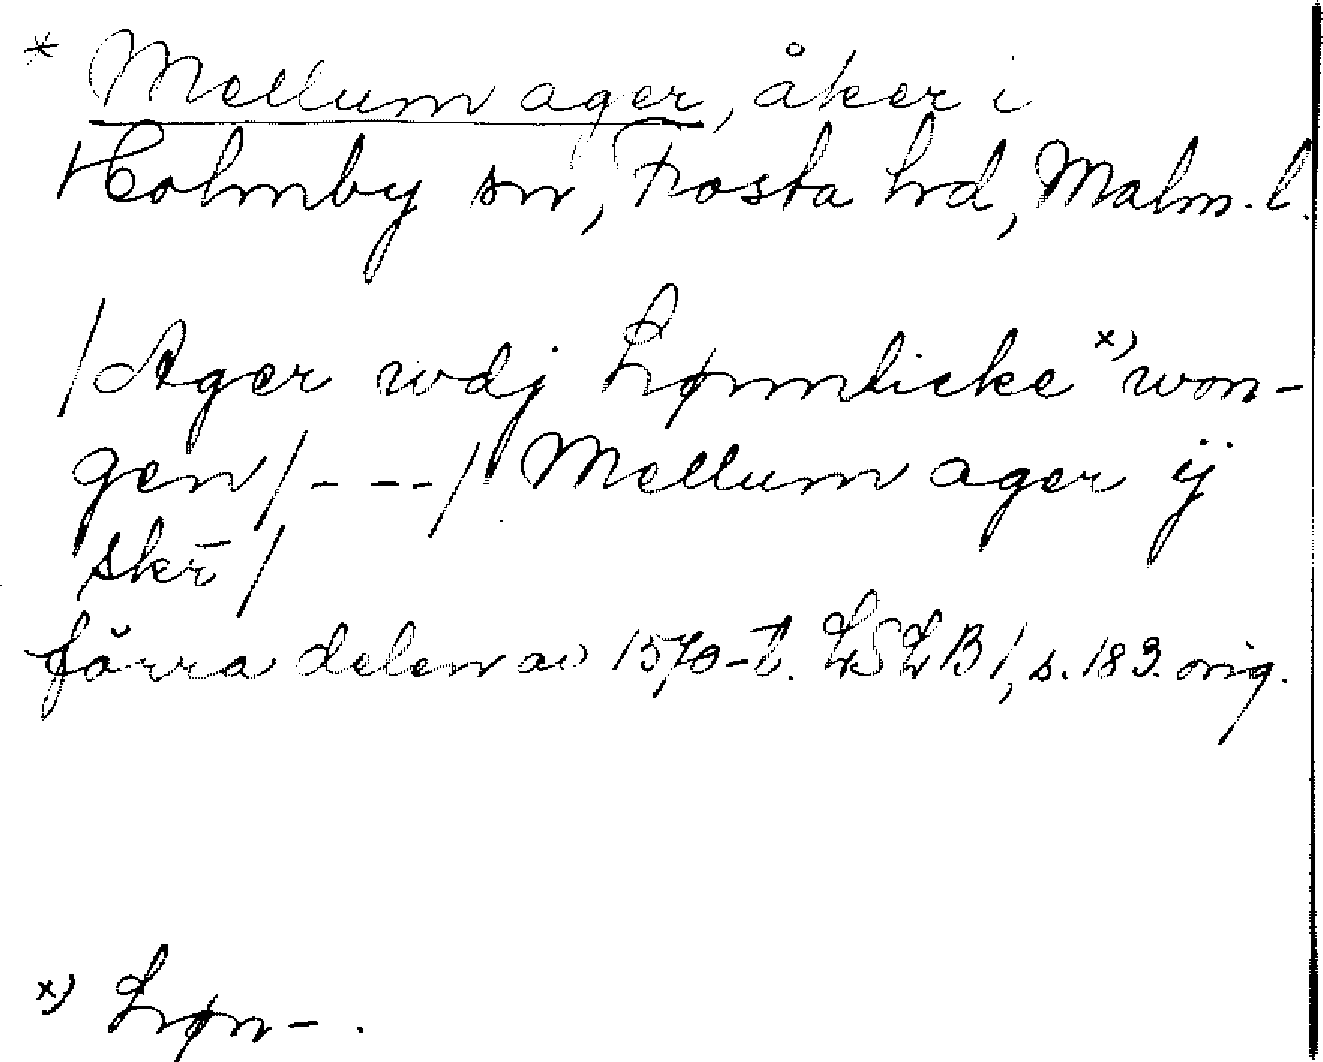 * Mellum ager, åker i
Holmby sn, Frosta hd, Malm. l.
/Ager wdj Lønnticke x) won-
gen/ - - - / Mellum ager ij
skr̄ /
förra delen av 1570-t. LSLB 1, s. 183. orig.
x) Løn- .